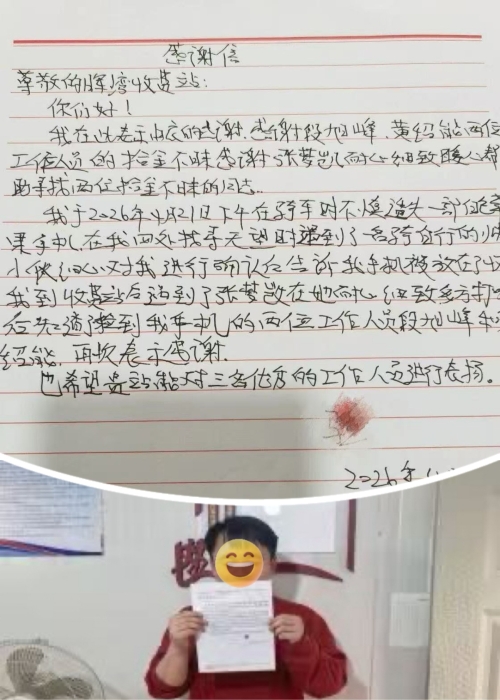 感谢信
尊敬的晖湾收费站:
你们好!
我在此表示由衷的感谢.感谢段旭峰、黄绍能两位
工作人员的拾金不昧感谢张梦凯耐心细致暖心帮
助寻找两位拾金不昧的同志.
我于2026年4月21日下午在骑车时不慎遗失一部
果手机.在我四处找寻无望时遇到了一名骑自行的
小伙细心对我进行确认后告诉我手机被放在
我到收费站后遇到了张梦凯在她耐心细致
到我手机的两位工作人员段旭峰
绍能.再次表示感谢.
也希望贵站能对三名优秀的工作人员进行表扬。
2026年